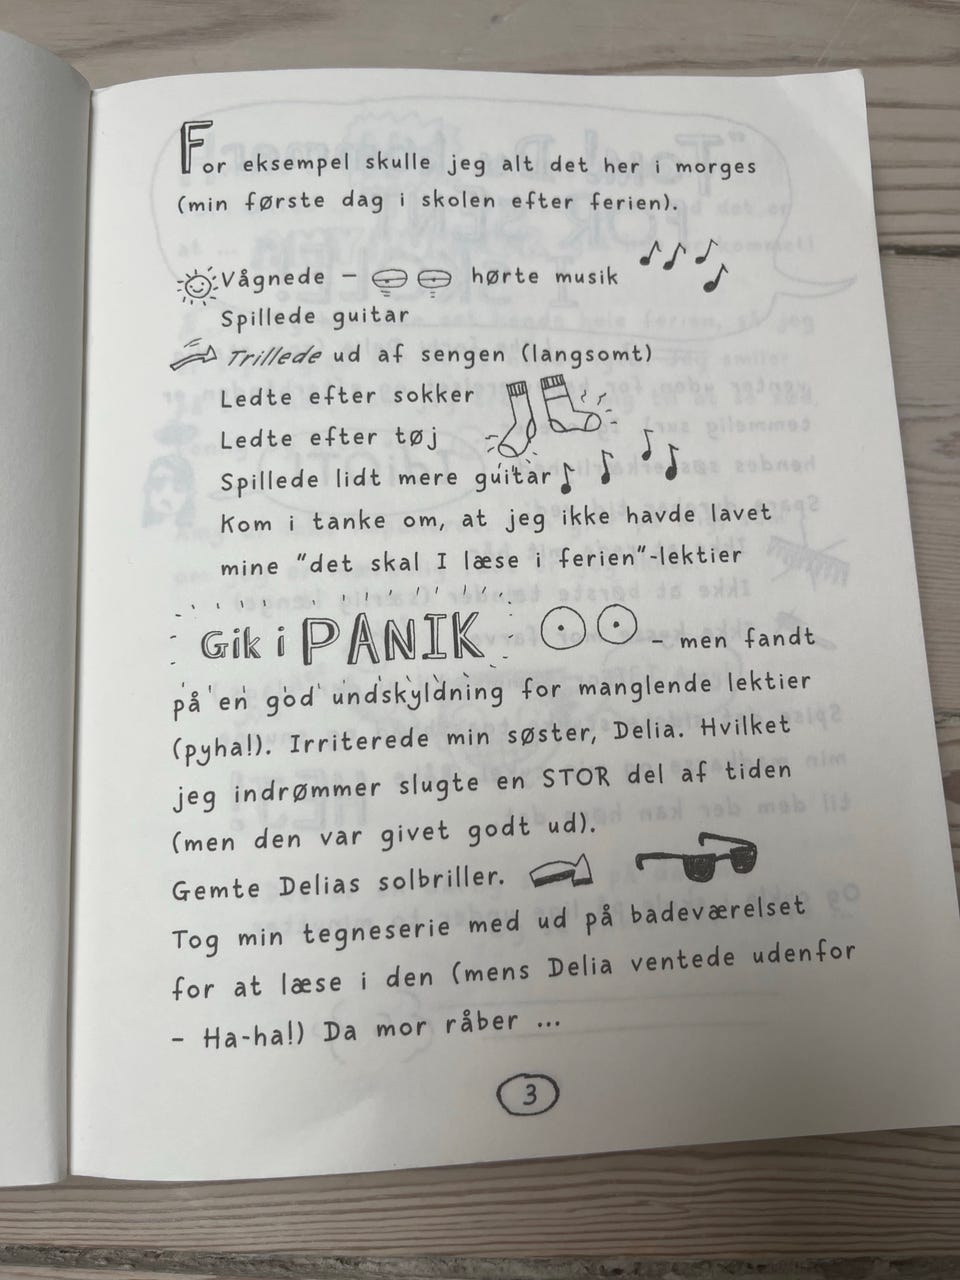 For eksempel skulle jeg alt det her i morges
(min første dag i skolen efter ferien).
Vågnede – hørte musik
Spillede guitar
Trillede ud af sengen (langsomt)
Ledte efter sokker
Ledte efter tøj
Spillede lidt mere guitar
Kom i tanke om, at jeg ikke havde lavet
mine "det skal I læse i ferien"-lektier
Gik i PANIK – men fandt
på en god undskyldning for manglende lektier
(pyha!). Irriterede min søster, Delia. Hvilket
jeg indrømmer slugte en STOR del af tiden
(men den var givet godt ud).
Gemte Delias solbriller.
Tog min tegneserie med ud på badeværelset
for at læse i den (mens Delia ventede udenfor
– Ha-ha!) Da mor råber ...
3